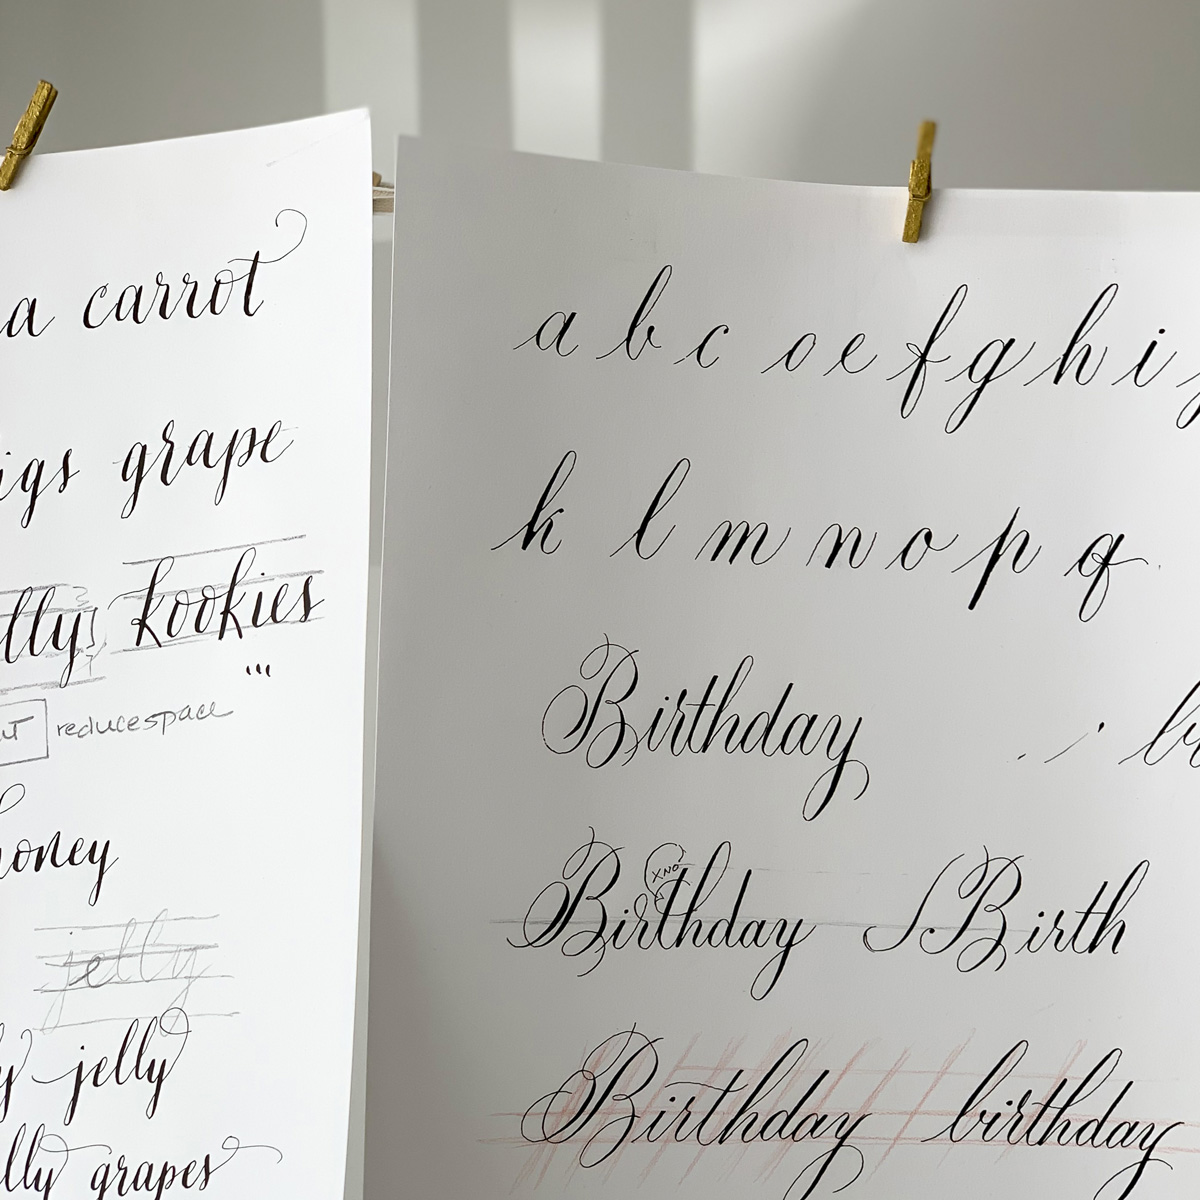 a carrot
grape
kookies
reduce space
honey
jelly
jelly
grapes
a b c o e f g h i
k l m n o p q
Birthday
XNO
Birthday Birth
Birthday birthday